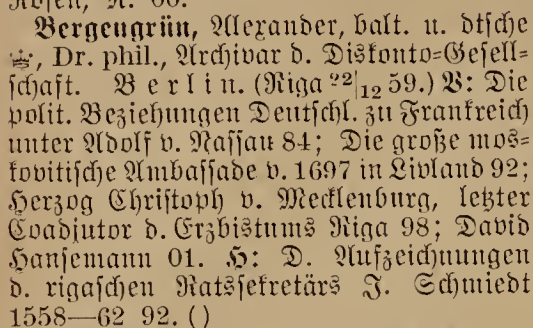 Bergengrün, Alexander, balt. u. dtsche
, Dr. phil., Archivar d. Diskonto=Gesell=
schaft. Berlin. (Riga 22|12 59.) V: Die
polit. Beziehungen Deutschl. zu Frankreich
unter Adolf v. Nassau 84; Die große mos=
kovitische Ambassade v. 1697 in Livland 92;
Herzog Christoph v. Mecklenburg, letzter
Coadjutor d. Erzbistums Riga 98; David
Hansemann 01. H: D. Aufzeichnungen
d. rigaschen Ratssekretärs J. Schmiedt
1558—62 92. ()